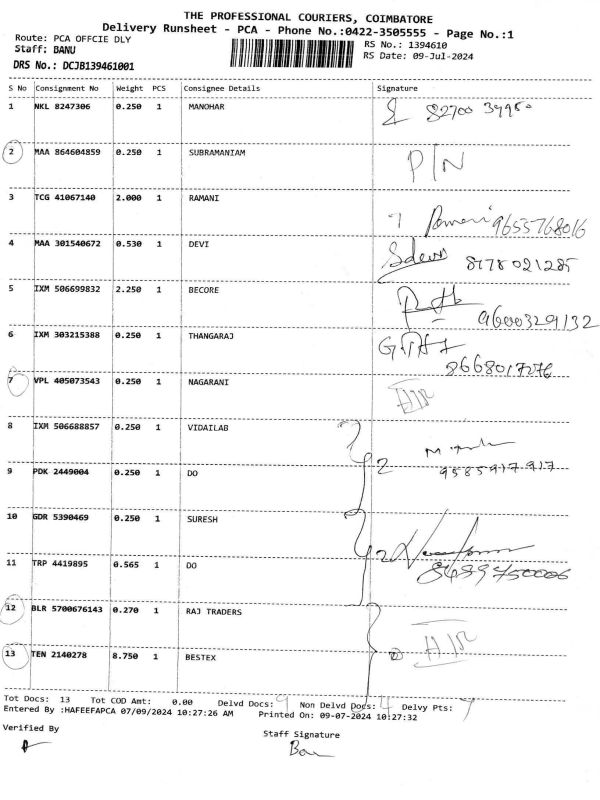 THE PROFESSIONAL COURIERS, COIMBATORE
Delivery Runsheet - PCA - Phone No.:0422-3505555 - Page No.:1
Route: PCA OFFCIE DLY
RS No.: 1394610
Staff: BANU
RS Date: 09-Jul-2024
DRS No.: DCJB139461001
S No Consignment No Weight PCS Consignee Details Signature
1 NKL 8247306 0.250 1 MANOHAR
2 MAA 864604859 0.250 1 SUBRAMANIAM P/N
3 TCG 41067140 2.000 1 RAMANI Ramani 9655768016
4 MAA 301540672 0.530 1 DEVI Sdevi 8178021285
5 IXM 506699832 2.250 1 BECORE 9600329132
6 IXM 303215388 0.250 1 THANGARAJ
8668017276
7 VPL 405073543 0.250 1 NAGARANI
8 IXM 506688857 0.250 1 VIDAILAB
9 PDK 2449004 0.250 1 DO 2 9585917917
10 GDR 5390469 0.250 1 SURESH
11 TRP 4419895 0.565 1 DO 2
12 BLR 5700676143 0.270 1 RAJ TRADERS
13 TEN 2140278 8.750 1 BESTEX
Tot Docs: 13 Tot COD Amt: 0.00 Delvd Docs: 9 Non Delvd Docs: 4 Delvy Pts: 7
Entered By :HAFEEFAPCA 07/09/2024 10:27:26 AM Printed On: 09-07-2024 10:27:32
Verified By
Staff Signature